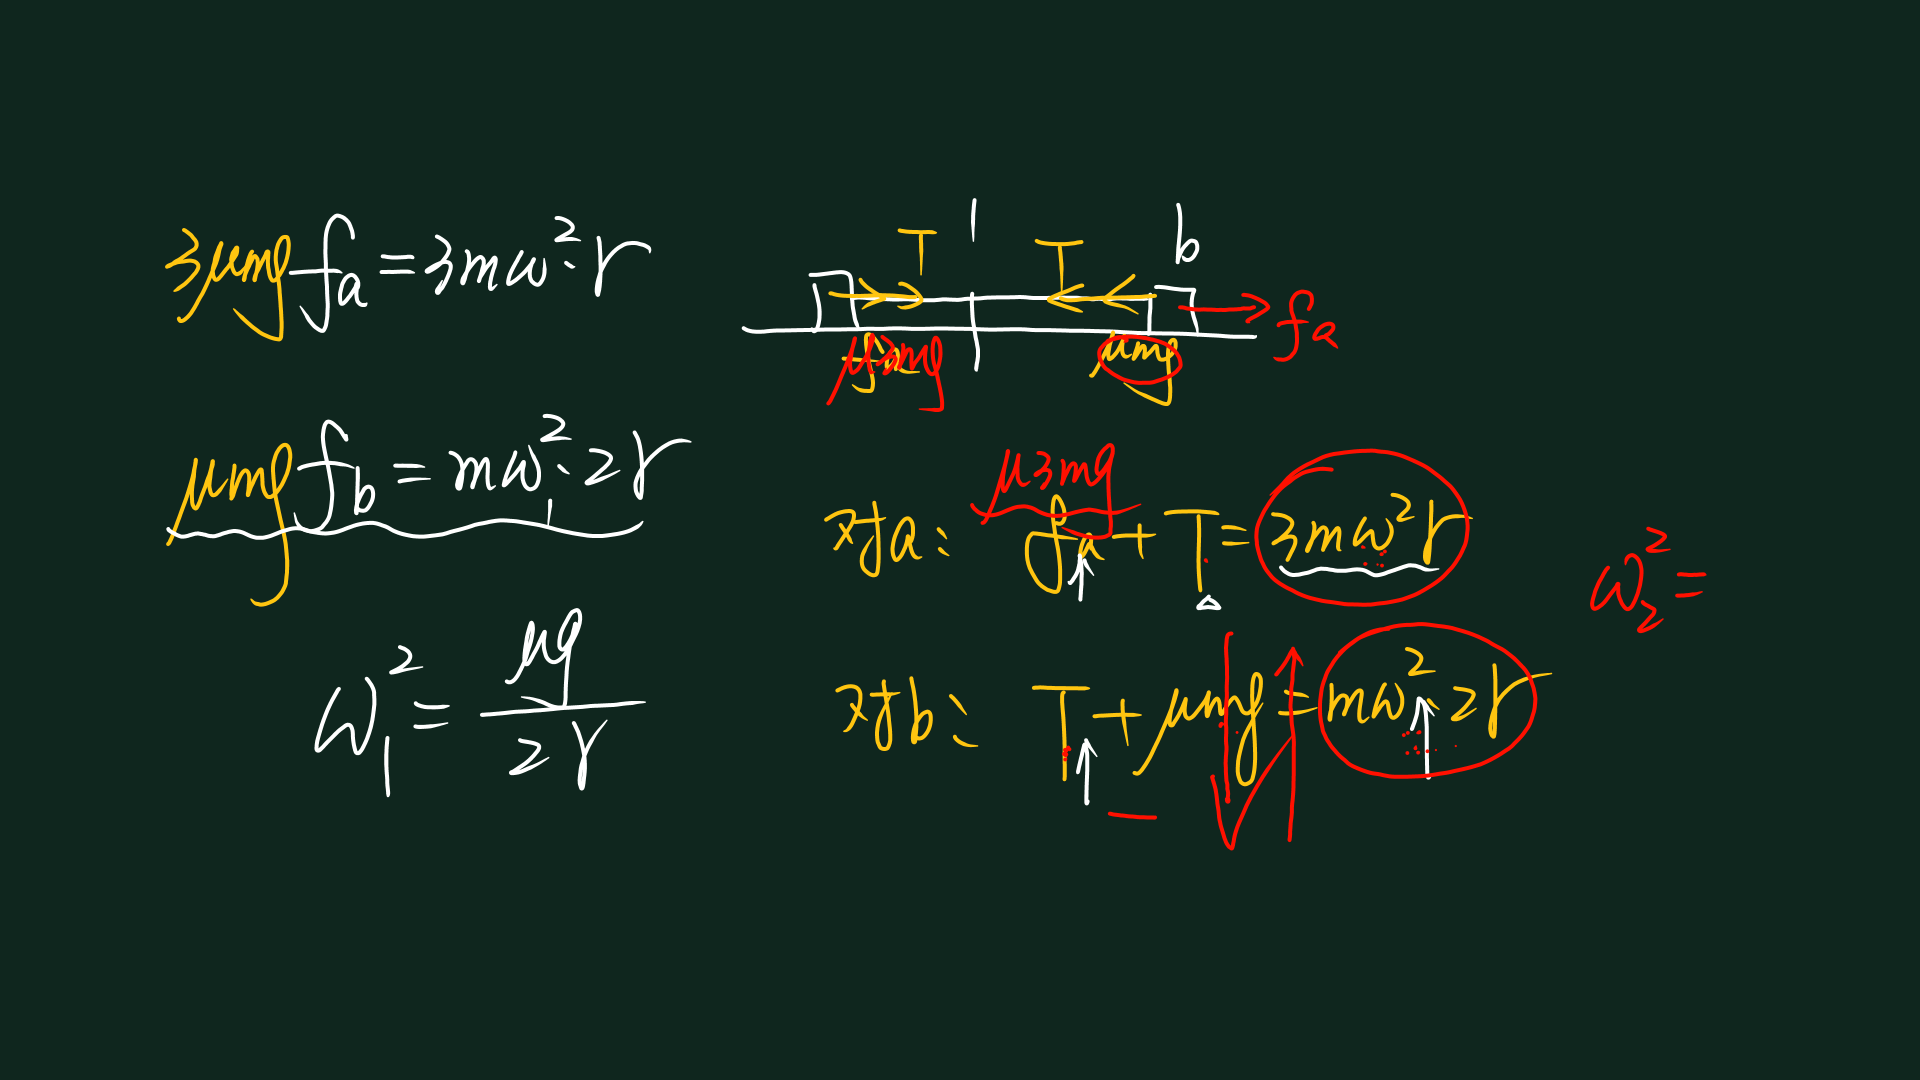 3μmg fa = 3mω²·r
μmg fb = mω²·2r
ω₁² = μg/2r
T T b
fa
μ3mg μmg
μ3mg
对a: fa + T = 3mω²r
对b: T + μmg = mω²·2r
ω₂² =